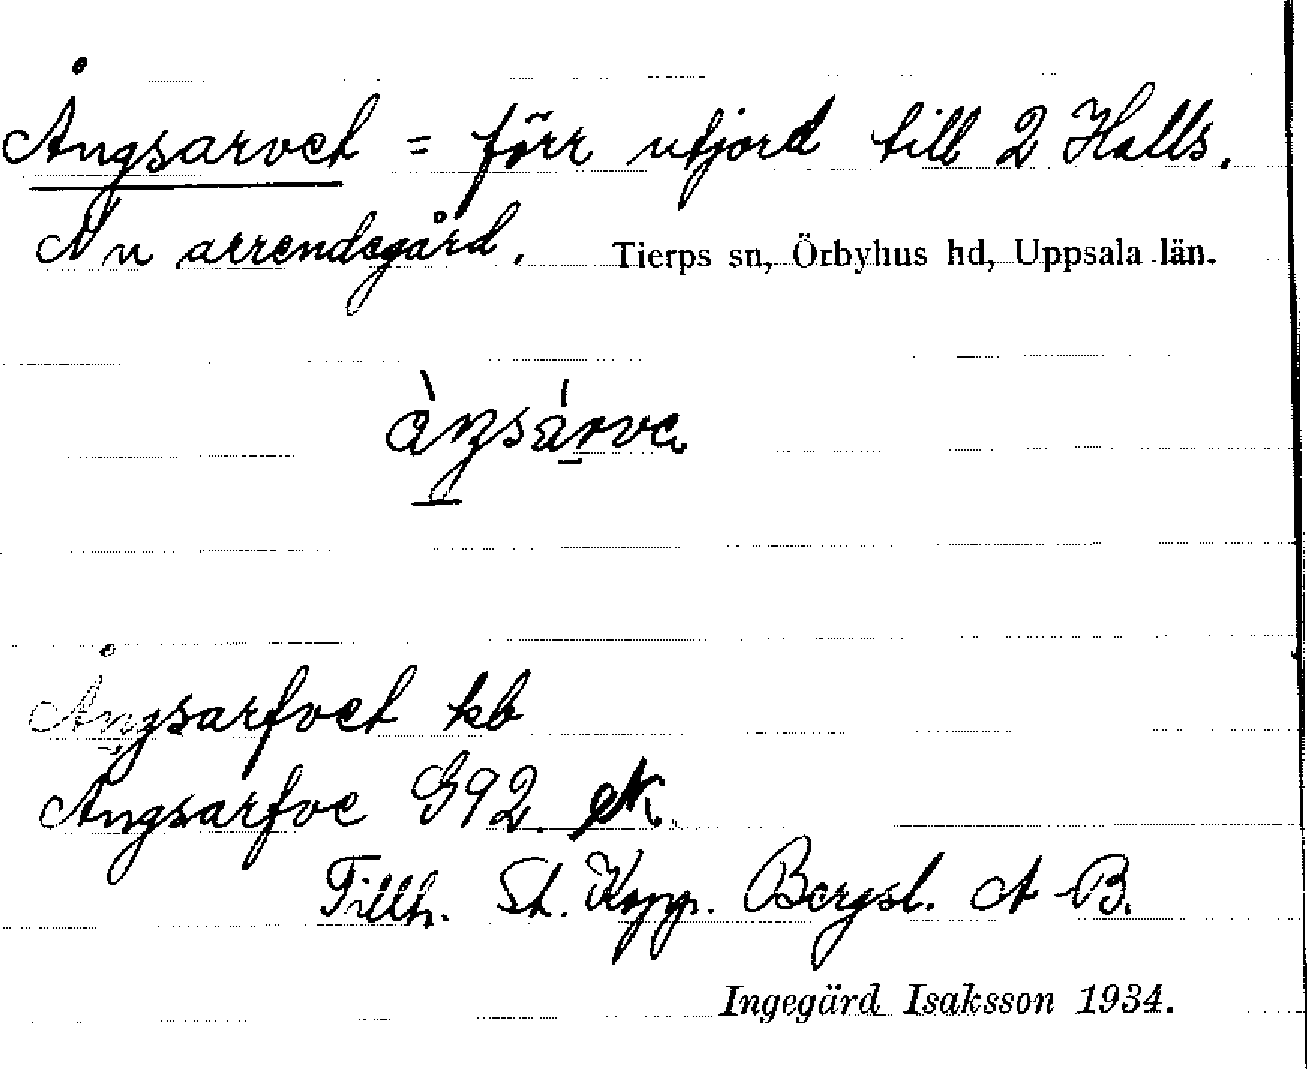 Ångsarvet = förr utjord till 2 Halls.
Nu arrendegård. Tierps sn, Örbyhus hd, Uppsala län.
Ångsarfvet kb
Angsarfve G92
Tillh. St. Kopp. Bergsl. A-B.
Ingegärd Isaksson 1934.